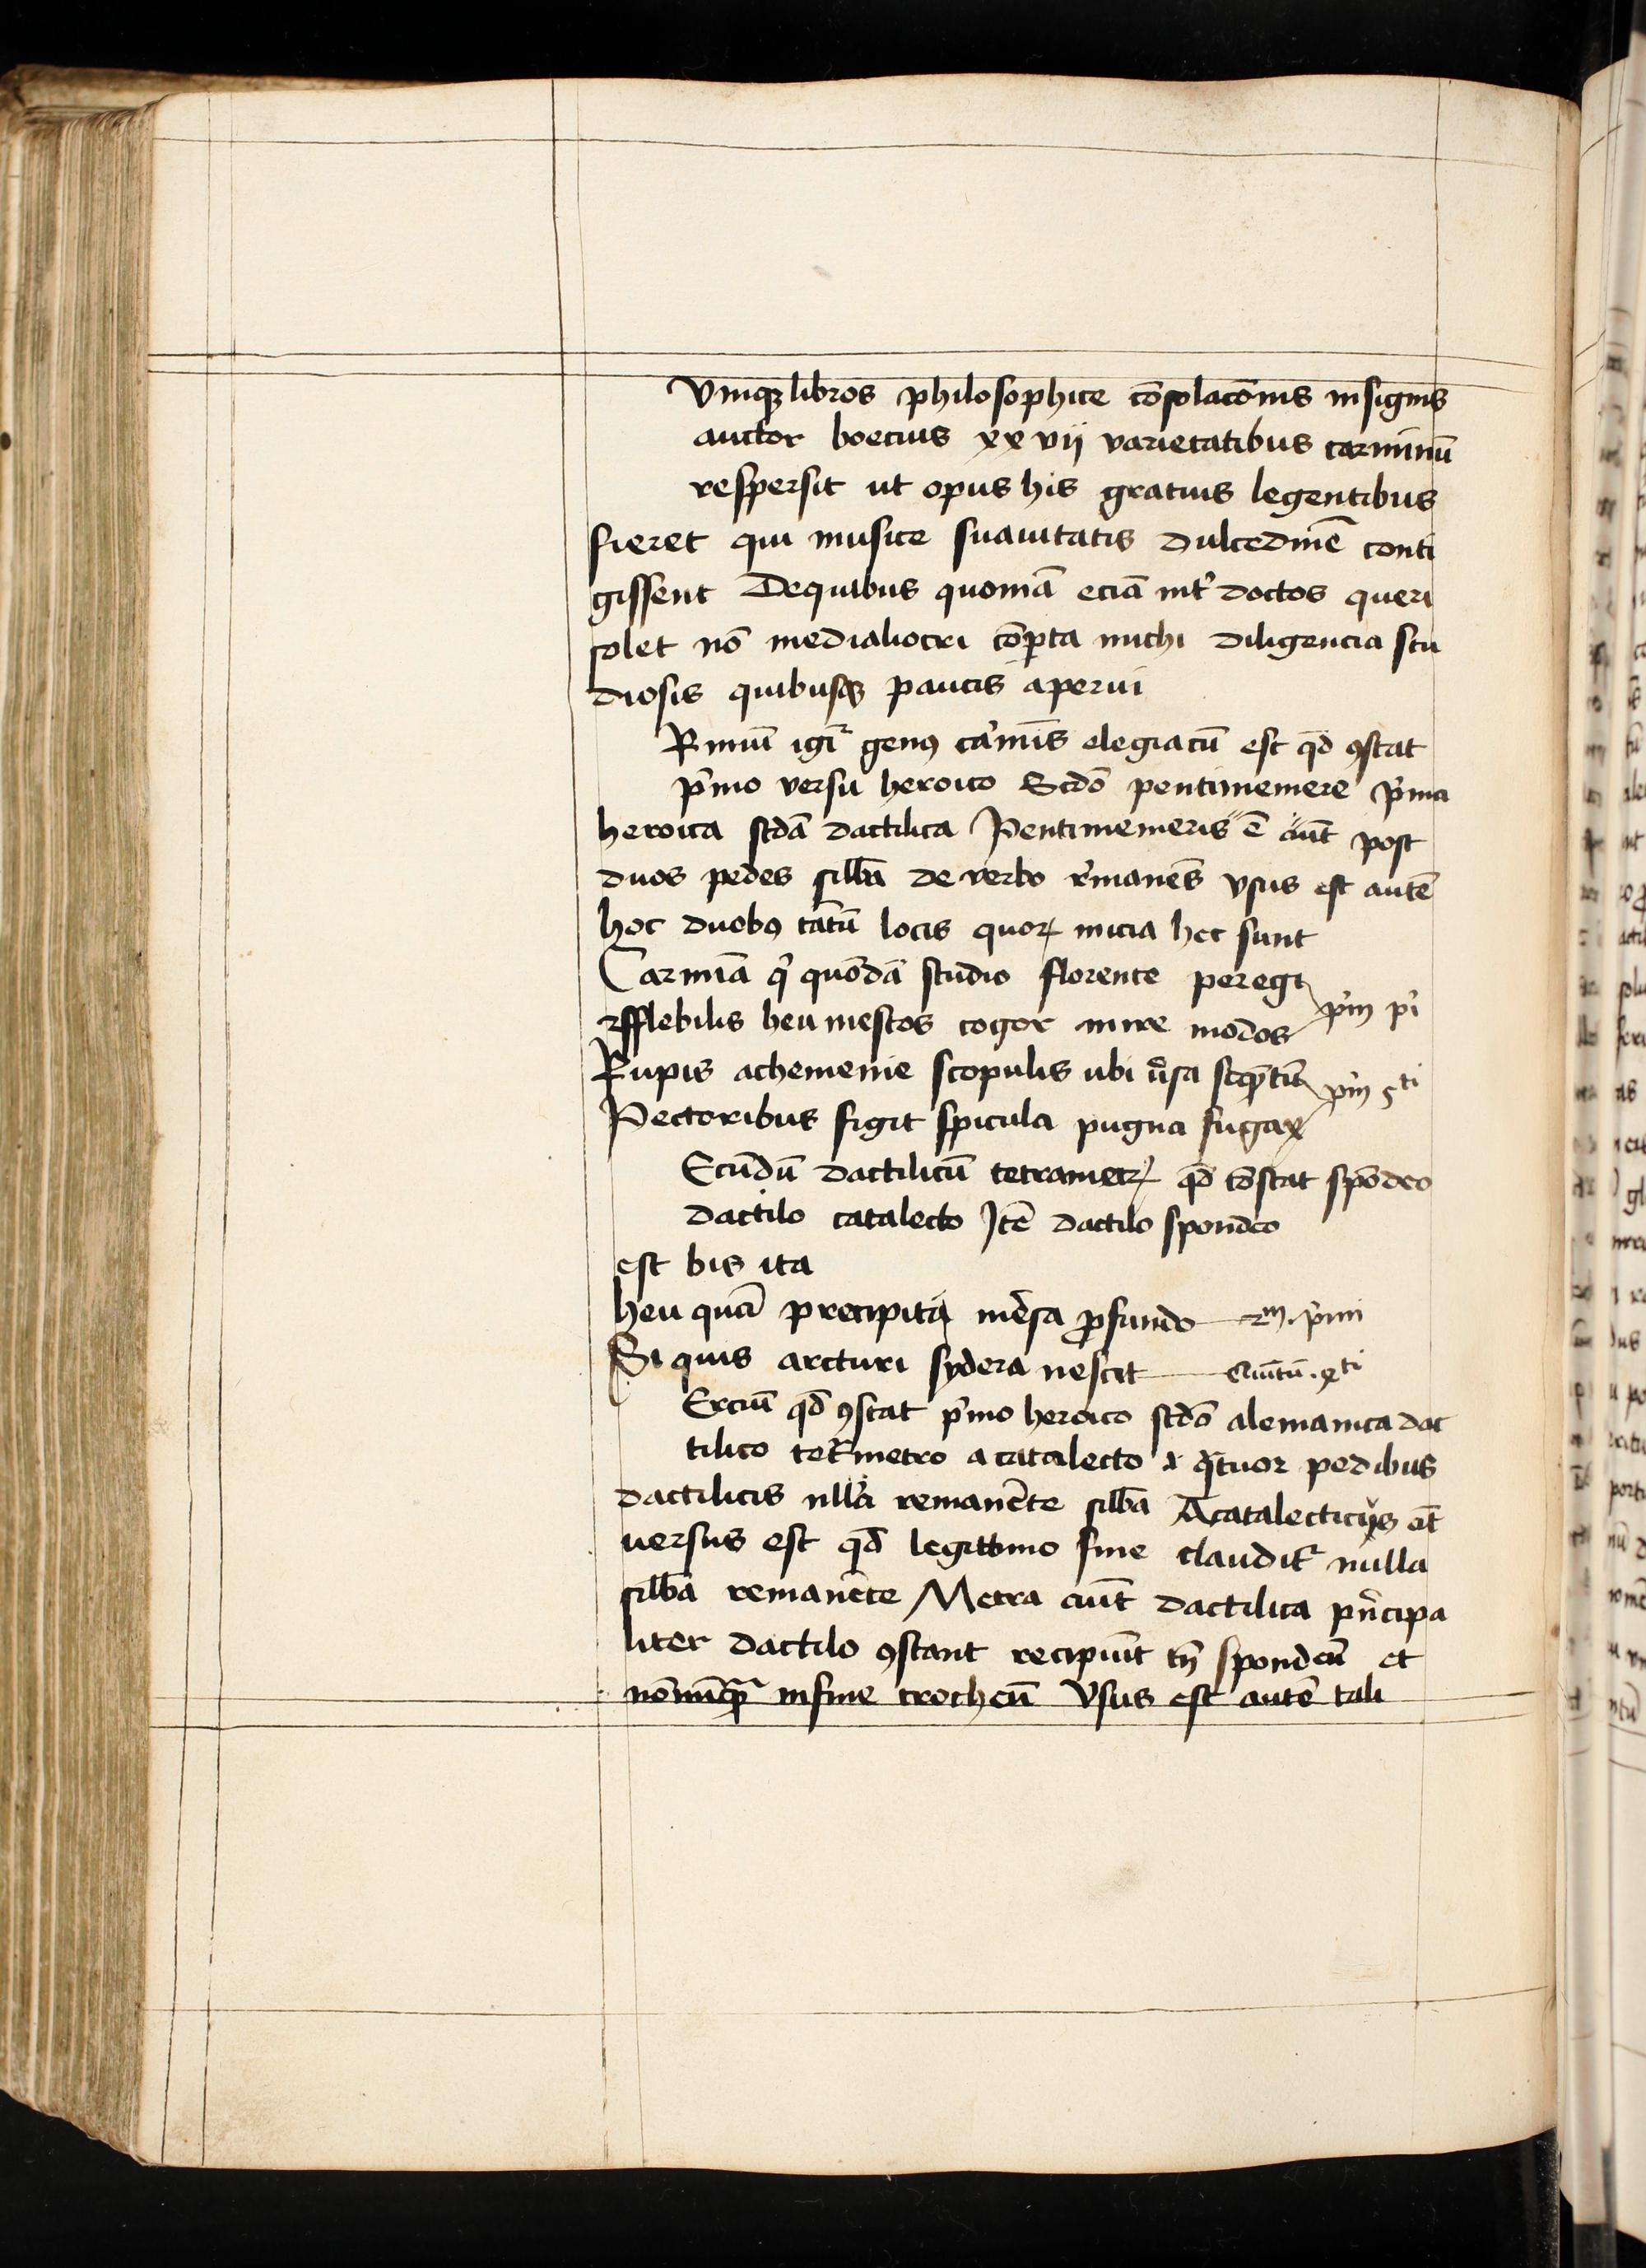 Vinqꝫ libros philosophice cōsolacōnis insignis
auctor boecius xx vij varietatibus carminū
respersit ut opus his gratius legentibus
fieret qui musice suauitatis dulcedinē conti
gissent Dequibus quoniā eciā int̉ doctos queri
solet nō medialiocri cōꝑta michi diligencia stu
diosis quibusqꝫ paucis aperui
Rimū igit̉ genꝰ car̉mīs elegiacū est qd̄ ꝯstat
p̉mo versu heroico Scdō pentimemere p̉ma
heroica scdā dactilica Pentimemeris ē aut̄ post
duos pedes sillb̄a de verbo r̉manēs vsus est autē
hoc duobꝰ tātū locis quoꝝ inicia hec sunt
Carminā q̉ quōdā studio florente peregi
fflebilis heu mestos cogor inire modos p̉m p̉i
Rupis achemenie scopulis ubi ūsa seqꝑtū
Pectoribus figit spicula pugna fugax p̉m 5ti
Ecūdū dactilicū tetrametꝝ qd̄ cōstat spōdeo
dactilo catalecto Itē dactilo spondeo
est bis ita
heu quā precipiti mēsa ꝓfundo 2m. p̉mi
Si quis arcturi sydera nescit Quītū. 4ti
Erciū qd̄ ꝯstat p̉mo heroico scdō alemanica dac
tilico tet̉metro acatalecto x q̉tuor pedibus
dactilicis nll̉a remanēte sillb̄a Acatalecticus et̄
uersus est qd̄ legittimo fine claudit̉ nulla
sillb̄a remanēte Metra aut̄ dactilica pn̉cipa
liter dactilo ꝯstant recipiūt tn̄ spondeū et
nōnūqꝫ̄ infine trocheū Vsus est autē tali